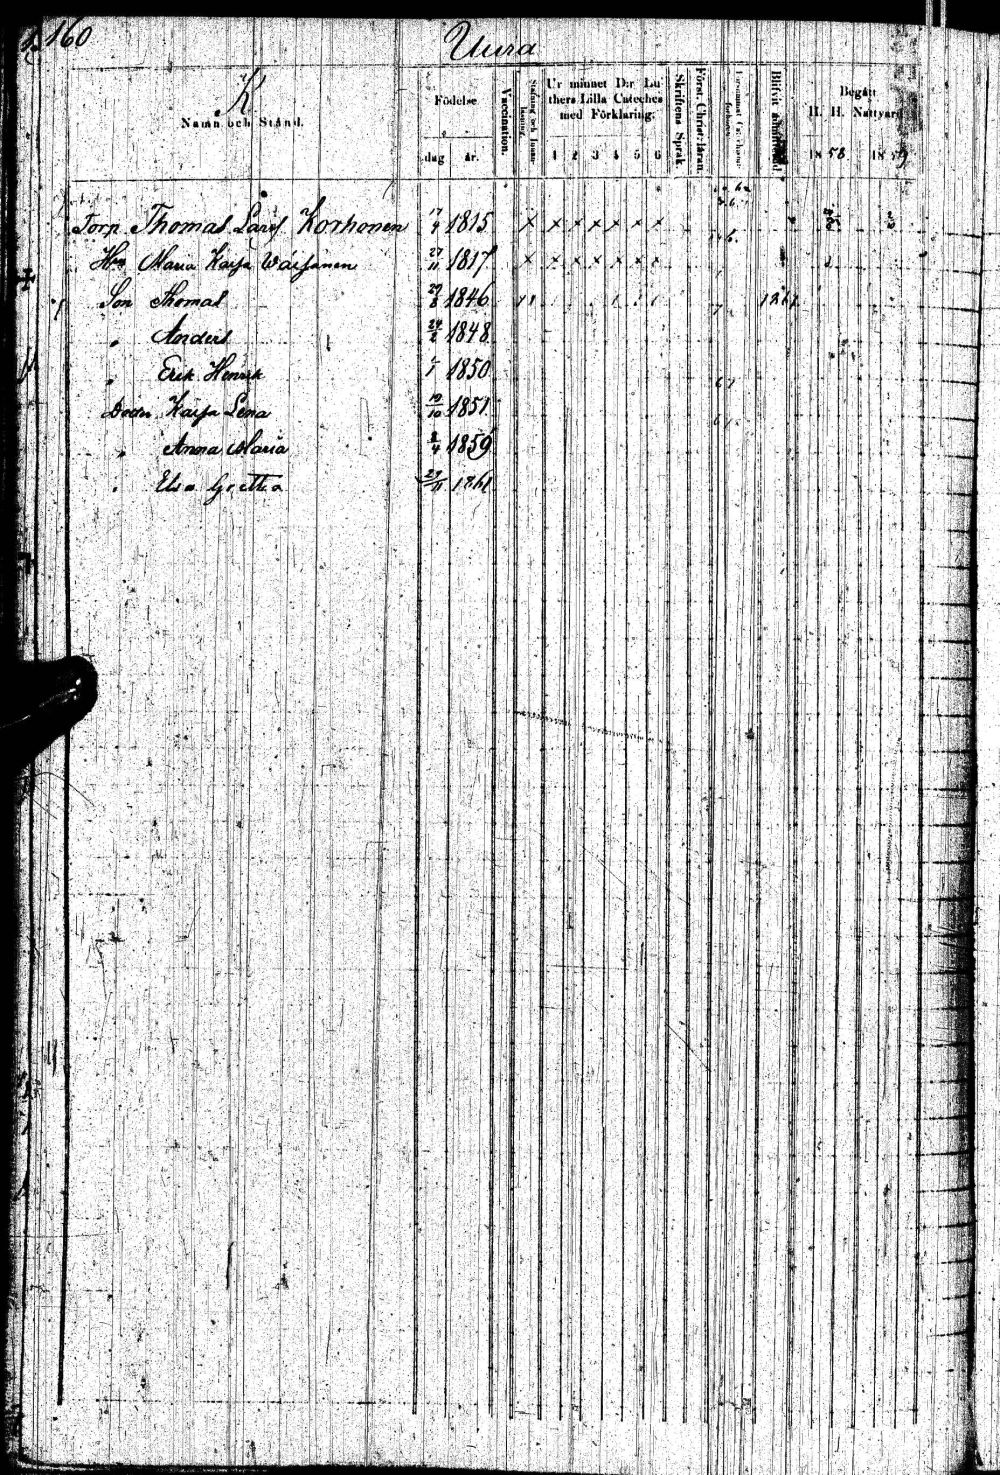 160
Uura
K
Namn och Stånd.
Födelse
dag år.
Vaccination.
Ur minnet D:r Lu-
thers Lilla Cateches
med Förklaring.
1 2 3 4 5 6
Skriftens Språk.
Först. Christ. läran.
Blifvit
Begått
H. H. Nattvard
1858. 1859
Torp. Thomas Larss. Korhonen 17/4 1815 x x x x x x x
Hu Maria Kaisa Waisanen 27/11 1817 x x x x x x x
Son Thomas 29/8 1846 1861
" Anders 24/2 1848
" Erik Henrik 1850
Dotter Kaisa Lena 19/10 1851
" Anna Maria 2/4 1859
" Elsa Gretta 1861